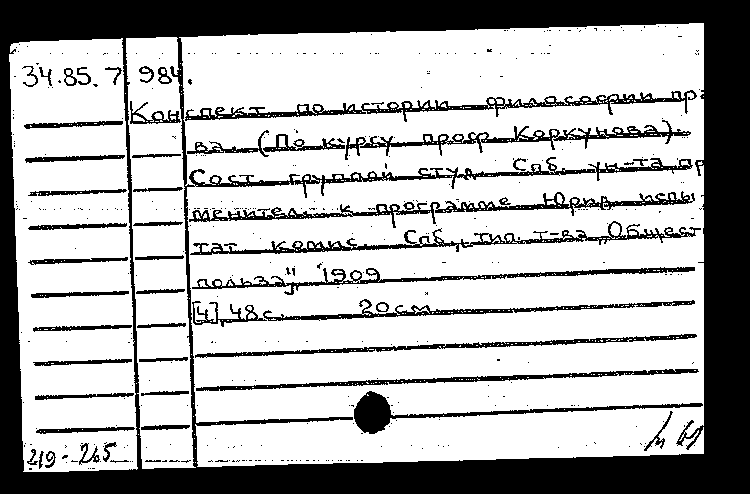 34.85.7.984.
Конспект по истории философии пра
ва. (По курсу проф. Коркунова).
Сост. группой студ. Спб. ун-та пр
менител. к программе Юрид. испы
тат комис. Спб., тип. т-ва „Общест
польза", 1909
[4], 48 с. 20 см.
219 - 265